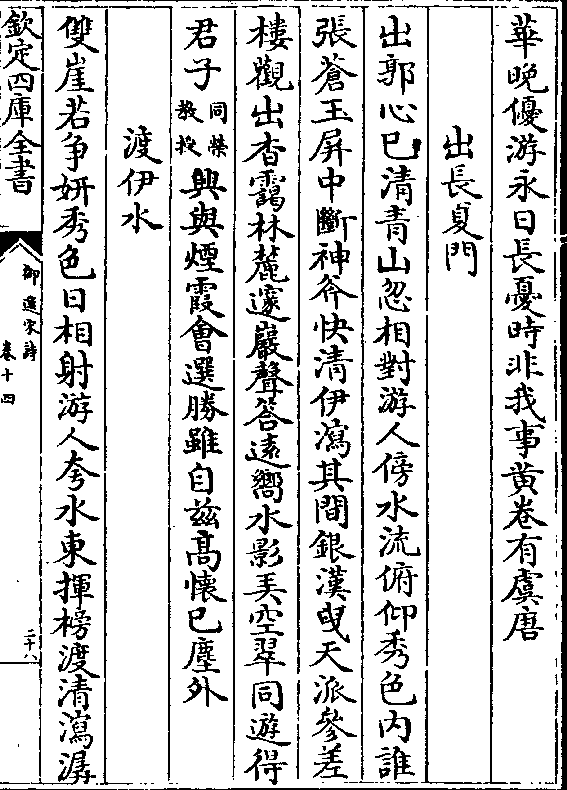 華晚優游永日長憂時非我事黄卷有虞唐
出長夏門
出郭心已清青山忽相對游人傍水流俯仰秀色内誰
張蒼玉屏中斷神斧快清伊瀉其間銀漢曳天派參差
樓觀出杳靄林麓邃巖聲答遠嚮水影弄空翠同遊得
君子同僚教授興與煙霞會選勝雖自兹高懷已塵外
渡伊水
雙崖若争妍秀色日相射游人夸水東揮榜渡清瀉潺
欽定四庫全書
御選宋詩
卷十四
二十八